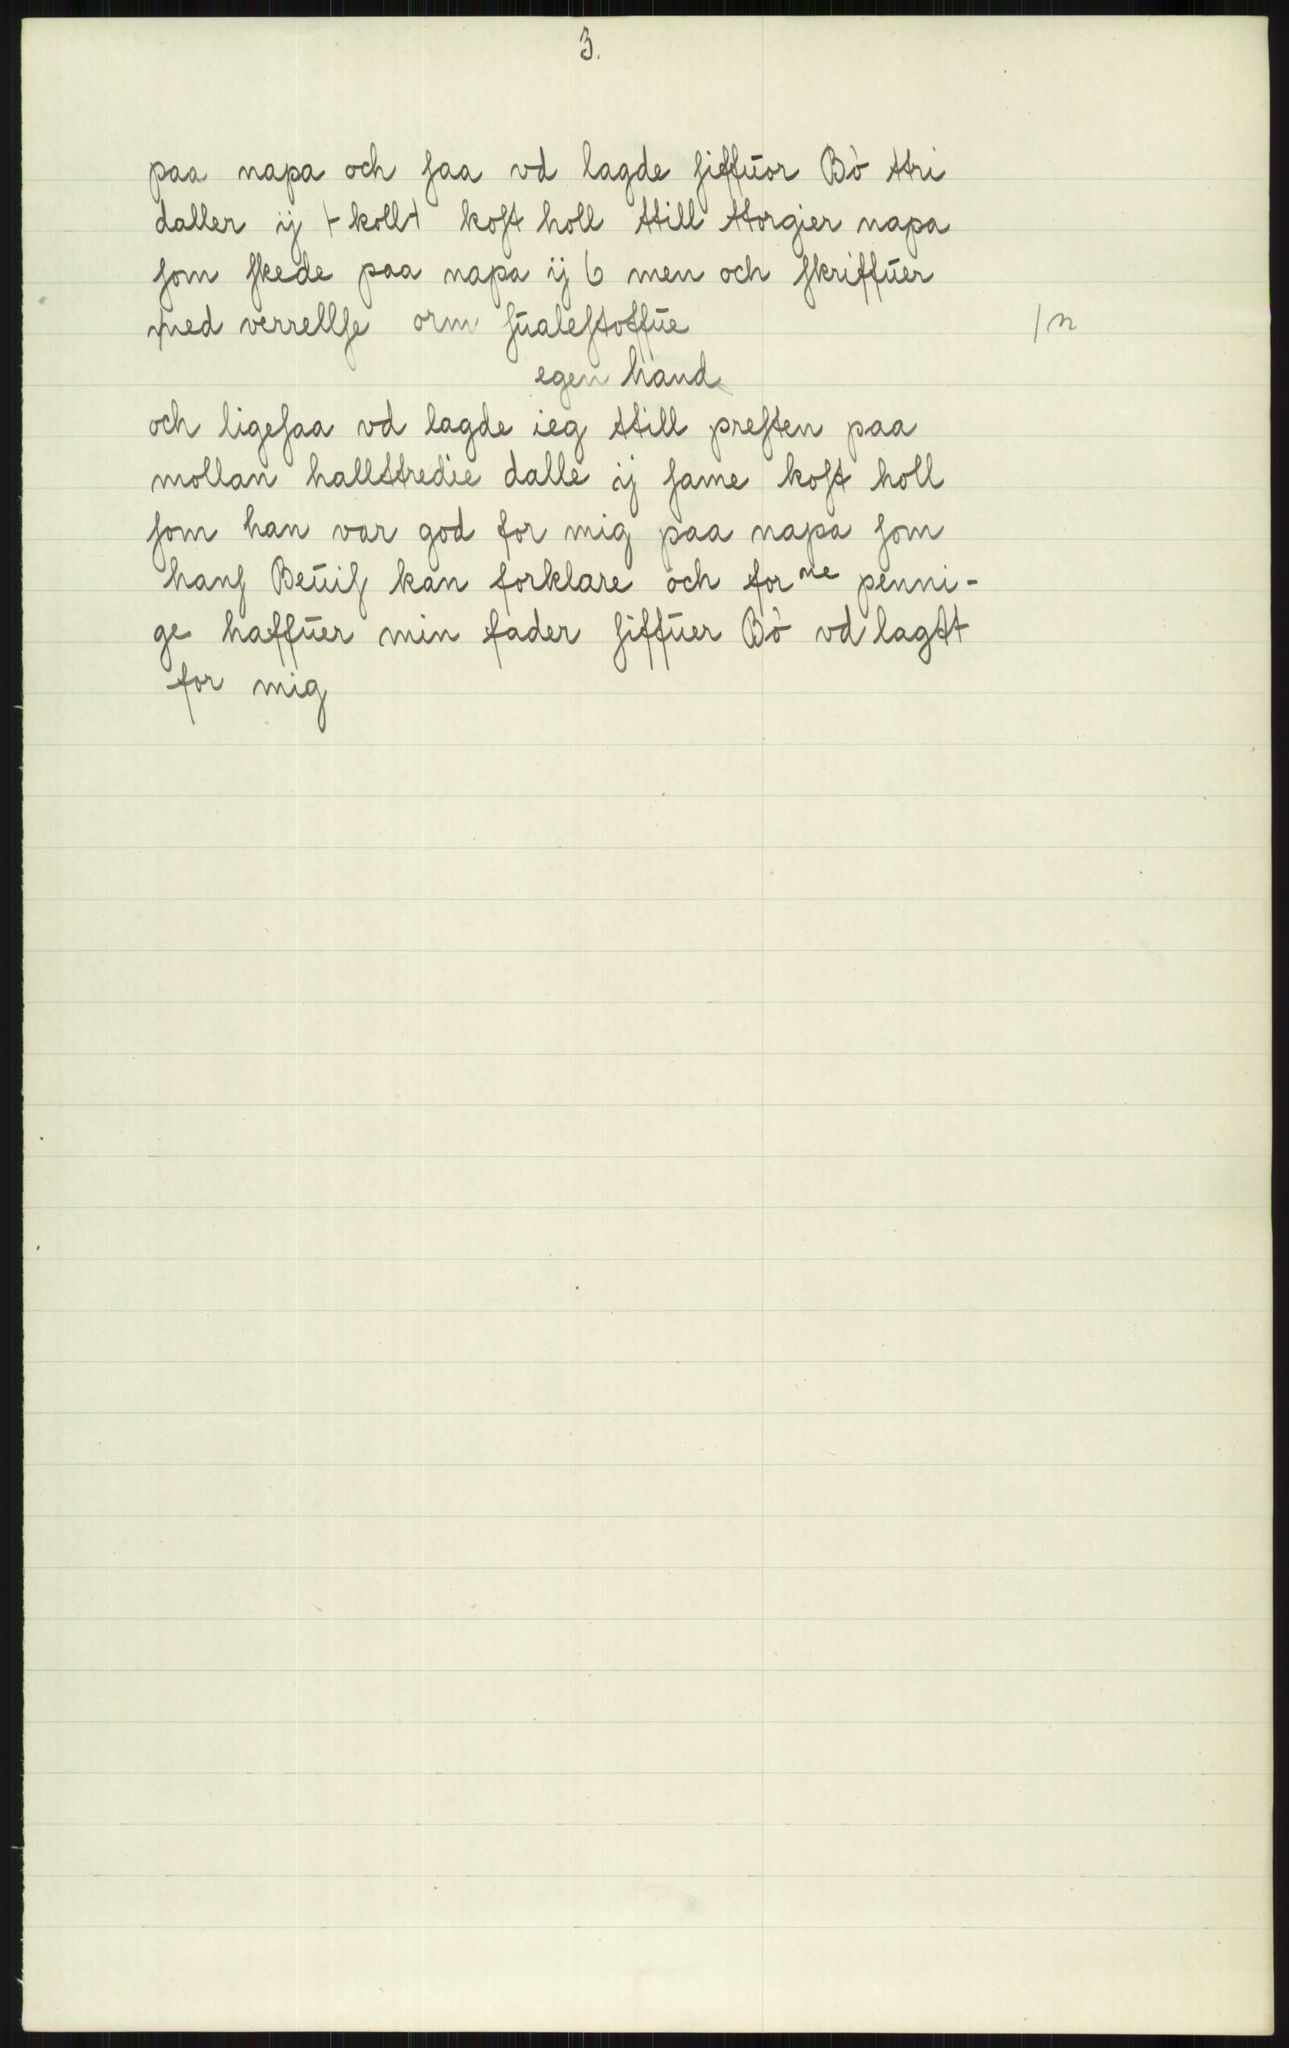 3.
paa napa och saa vd lagde siffuor Bò ttri
daller ij + kollt kost holl ttill ttorgier napa
som skede paa napa ij 6 men och skriffuer
med verrellse orm sualestoffue /n
egen hand
och ligesaa vd lagde ieg ttill presten paa
mollan hallttredie dalle ij same kost holl
som han var god for mig paa napa som
hans Beuis kan forklare och for ne penni-
ge haffuer min fader siffuer Bò vd lagtt
for mig